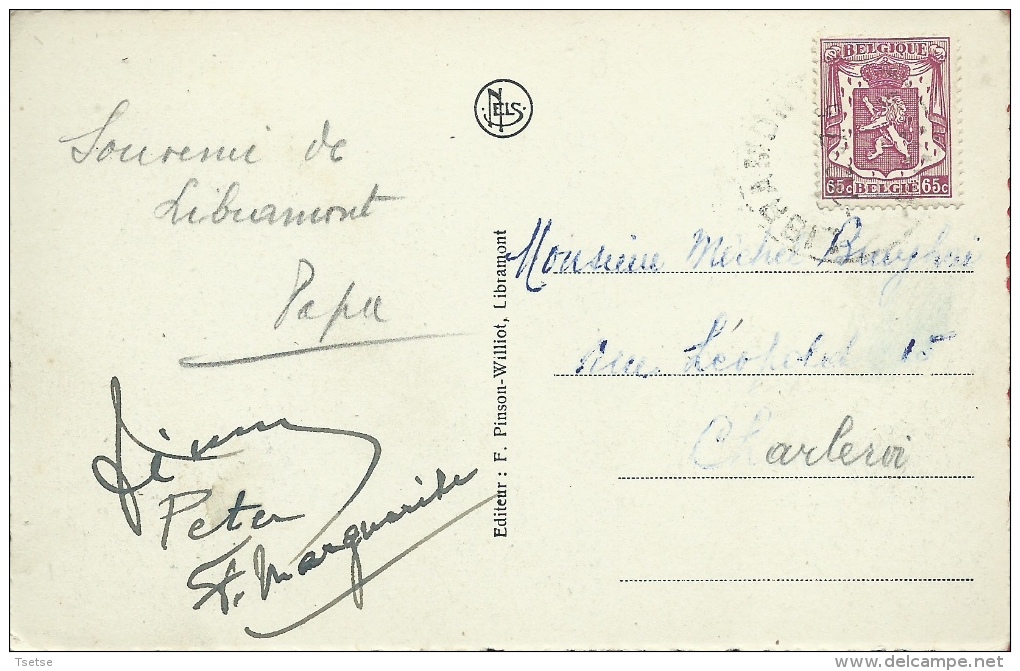 Souvenir de
Libramont
Papa
Peter
St. Marguerite
NELS
Editeur : F. Pinson-Williot, Libramont
BELGIQUE
65c BELGIË 65c
Monsieur Michel
rue Léopold 15
Charleroi
Tsetse
delcampe.net